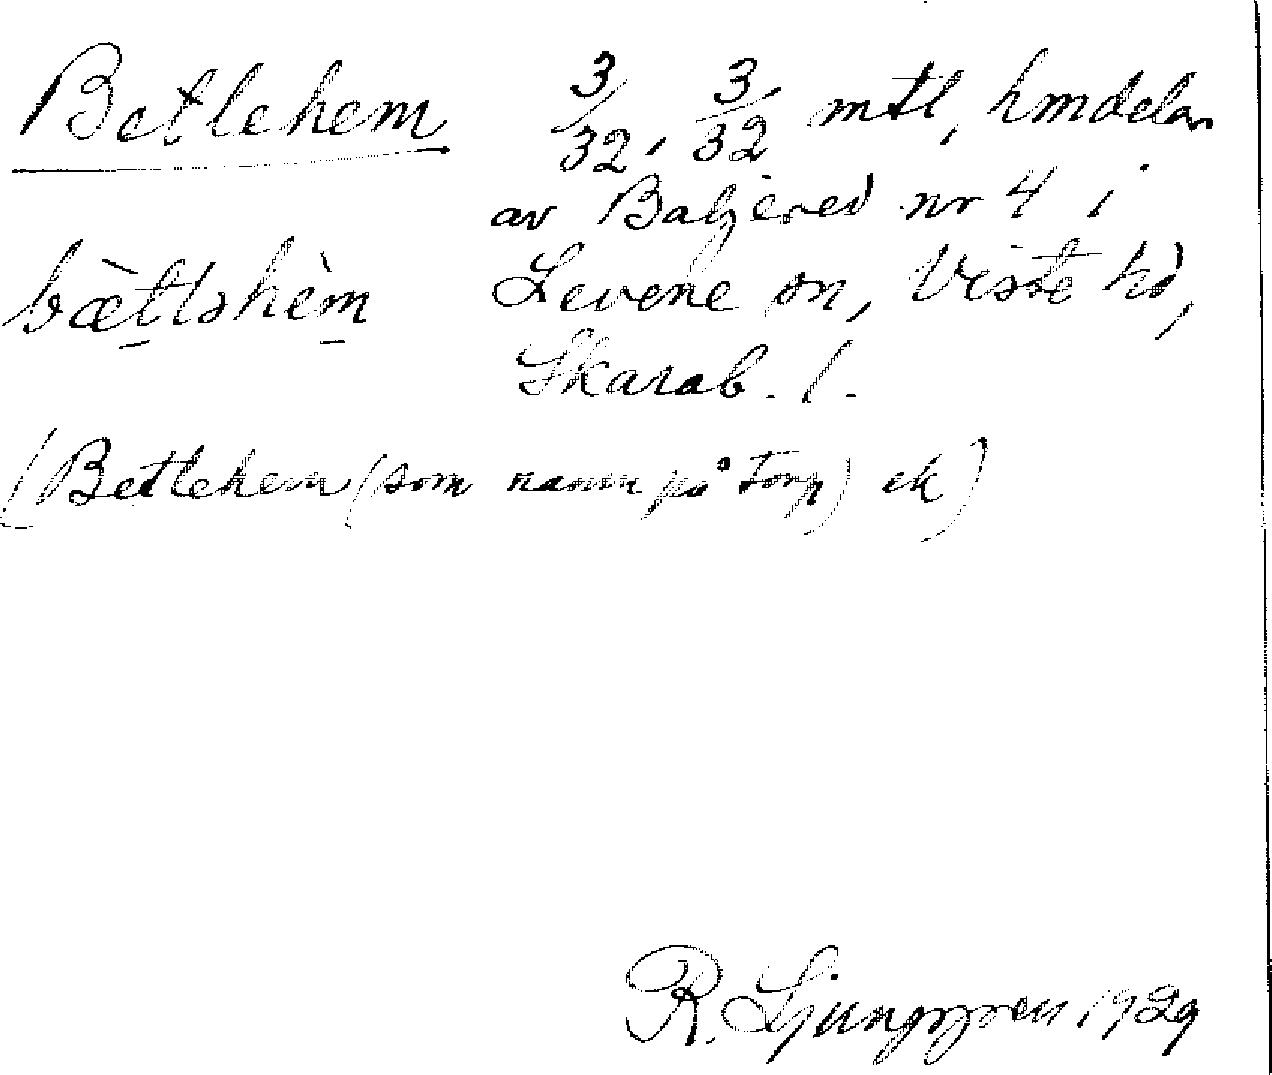 Betlehem 3/32, 3/32 mtl, hmdelar
av Baljered nr 4 i
bættlshèm Levene sn, Viste hd,
Skarab. l.
(Betlehem (som namn på torp) ek)
R. Ljunggren 1929